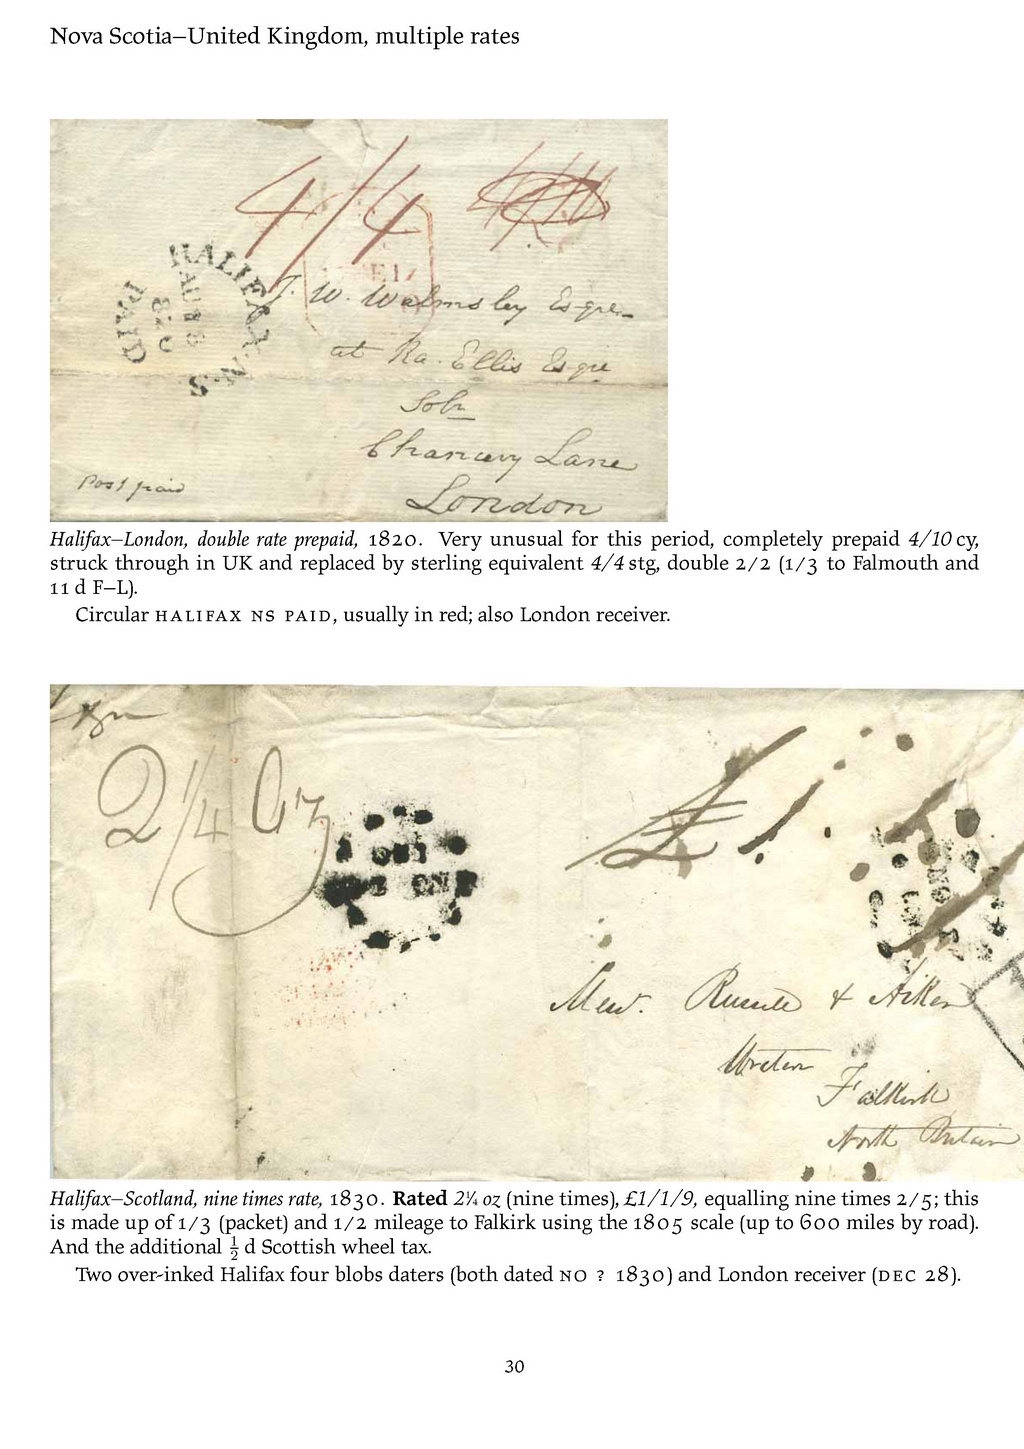 Nova Scotia–United Kingdom, multiple rates
4/4
HALIFAX N.S
PAID
AU
820
E17
J. W. Walmsley Esqre
at Ra. Ellis Esqre
Solr
Chancery Lane
Post paid
London
Halifax–London, double rate prepaid, 1820. Very unusual for this period, completely prepaid 4/10 cy,
struck through in UK and replaced by sterling equivalent 4/4 stg, double 2/2 (1/3 to Falmouth and
11 d F–L).
Circular HALIFAX NS PAID, usually in red; also London receiver.
2 1/4 Oz
£1
Messrs. Russell & Aitken
Writers
Falkirk
North Britain
Halifax–Scotland, nine times rate, 1830. Rated 2¼ oz (nine times), £1/1/9, equalling nine times 2/5; this
is made up of 1/3 (packet) and 1/2 mileage to Falkirk using the 1805 scale (up to 600 miles by road).
And the additional ½ d Scottish wheel tax.
Two over-inked Halifax four blobs daters (both dated NO ? 1830) and London receiver (DEC 28).
30